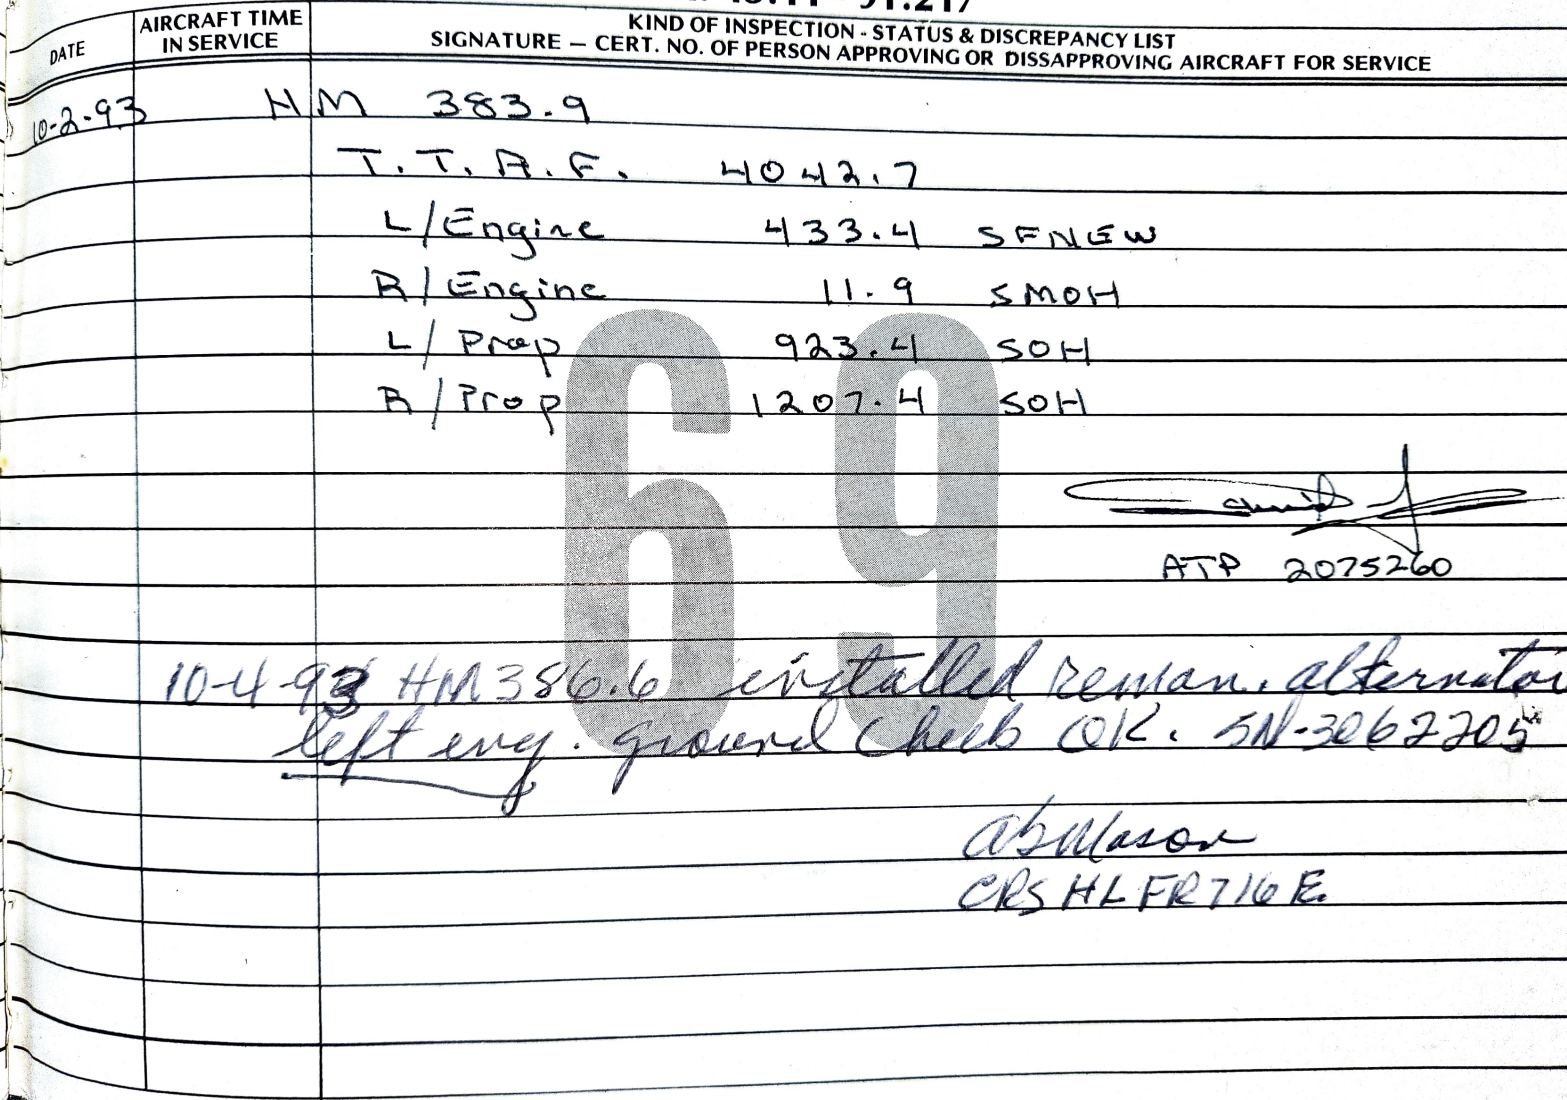 91.217
DATE
AIRCRAFT TIME
IN SERVICE
KIND OF INSPECTION - STATUS & DISCREPANCY LIST
SIGNATURE — CERT. NO. OF PERSON APPROVING OR DISSAPPROVING AIRCRAFT FOR SERVICE
10-2-93 HM 383.9
T.T.A.F. 4042.7
L/Engine 433.4 SFNEW
R/Engine 11.9 SMOH
L/Prop 923.4 SOH
R/Prop 1207.4 SOH
69
ATP 2075260
10-4-93 HM 386.6 installed reman. alternator
left eng. ground check OK. SN-3062205
CRS HLFR716E